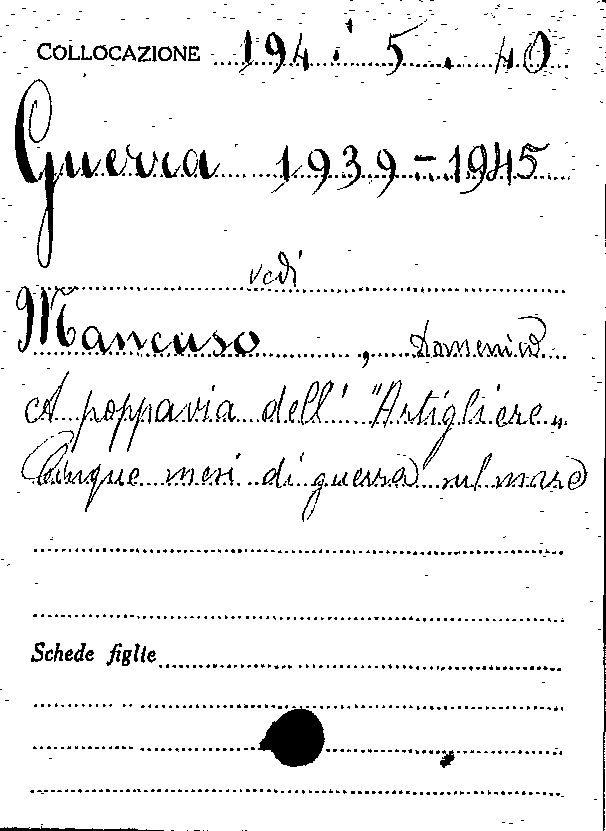 COLLOCAZIONE 194. 5. 40
Guerra 1939-1945
vedi
Mancuso, Domenico
A poppavia dell' "Artigliere"
Cinque mesi di guerra sul mare
Schede figlie